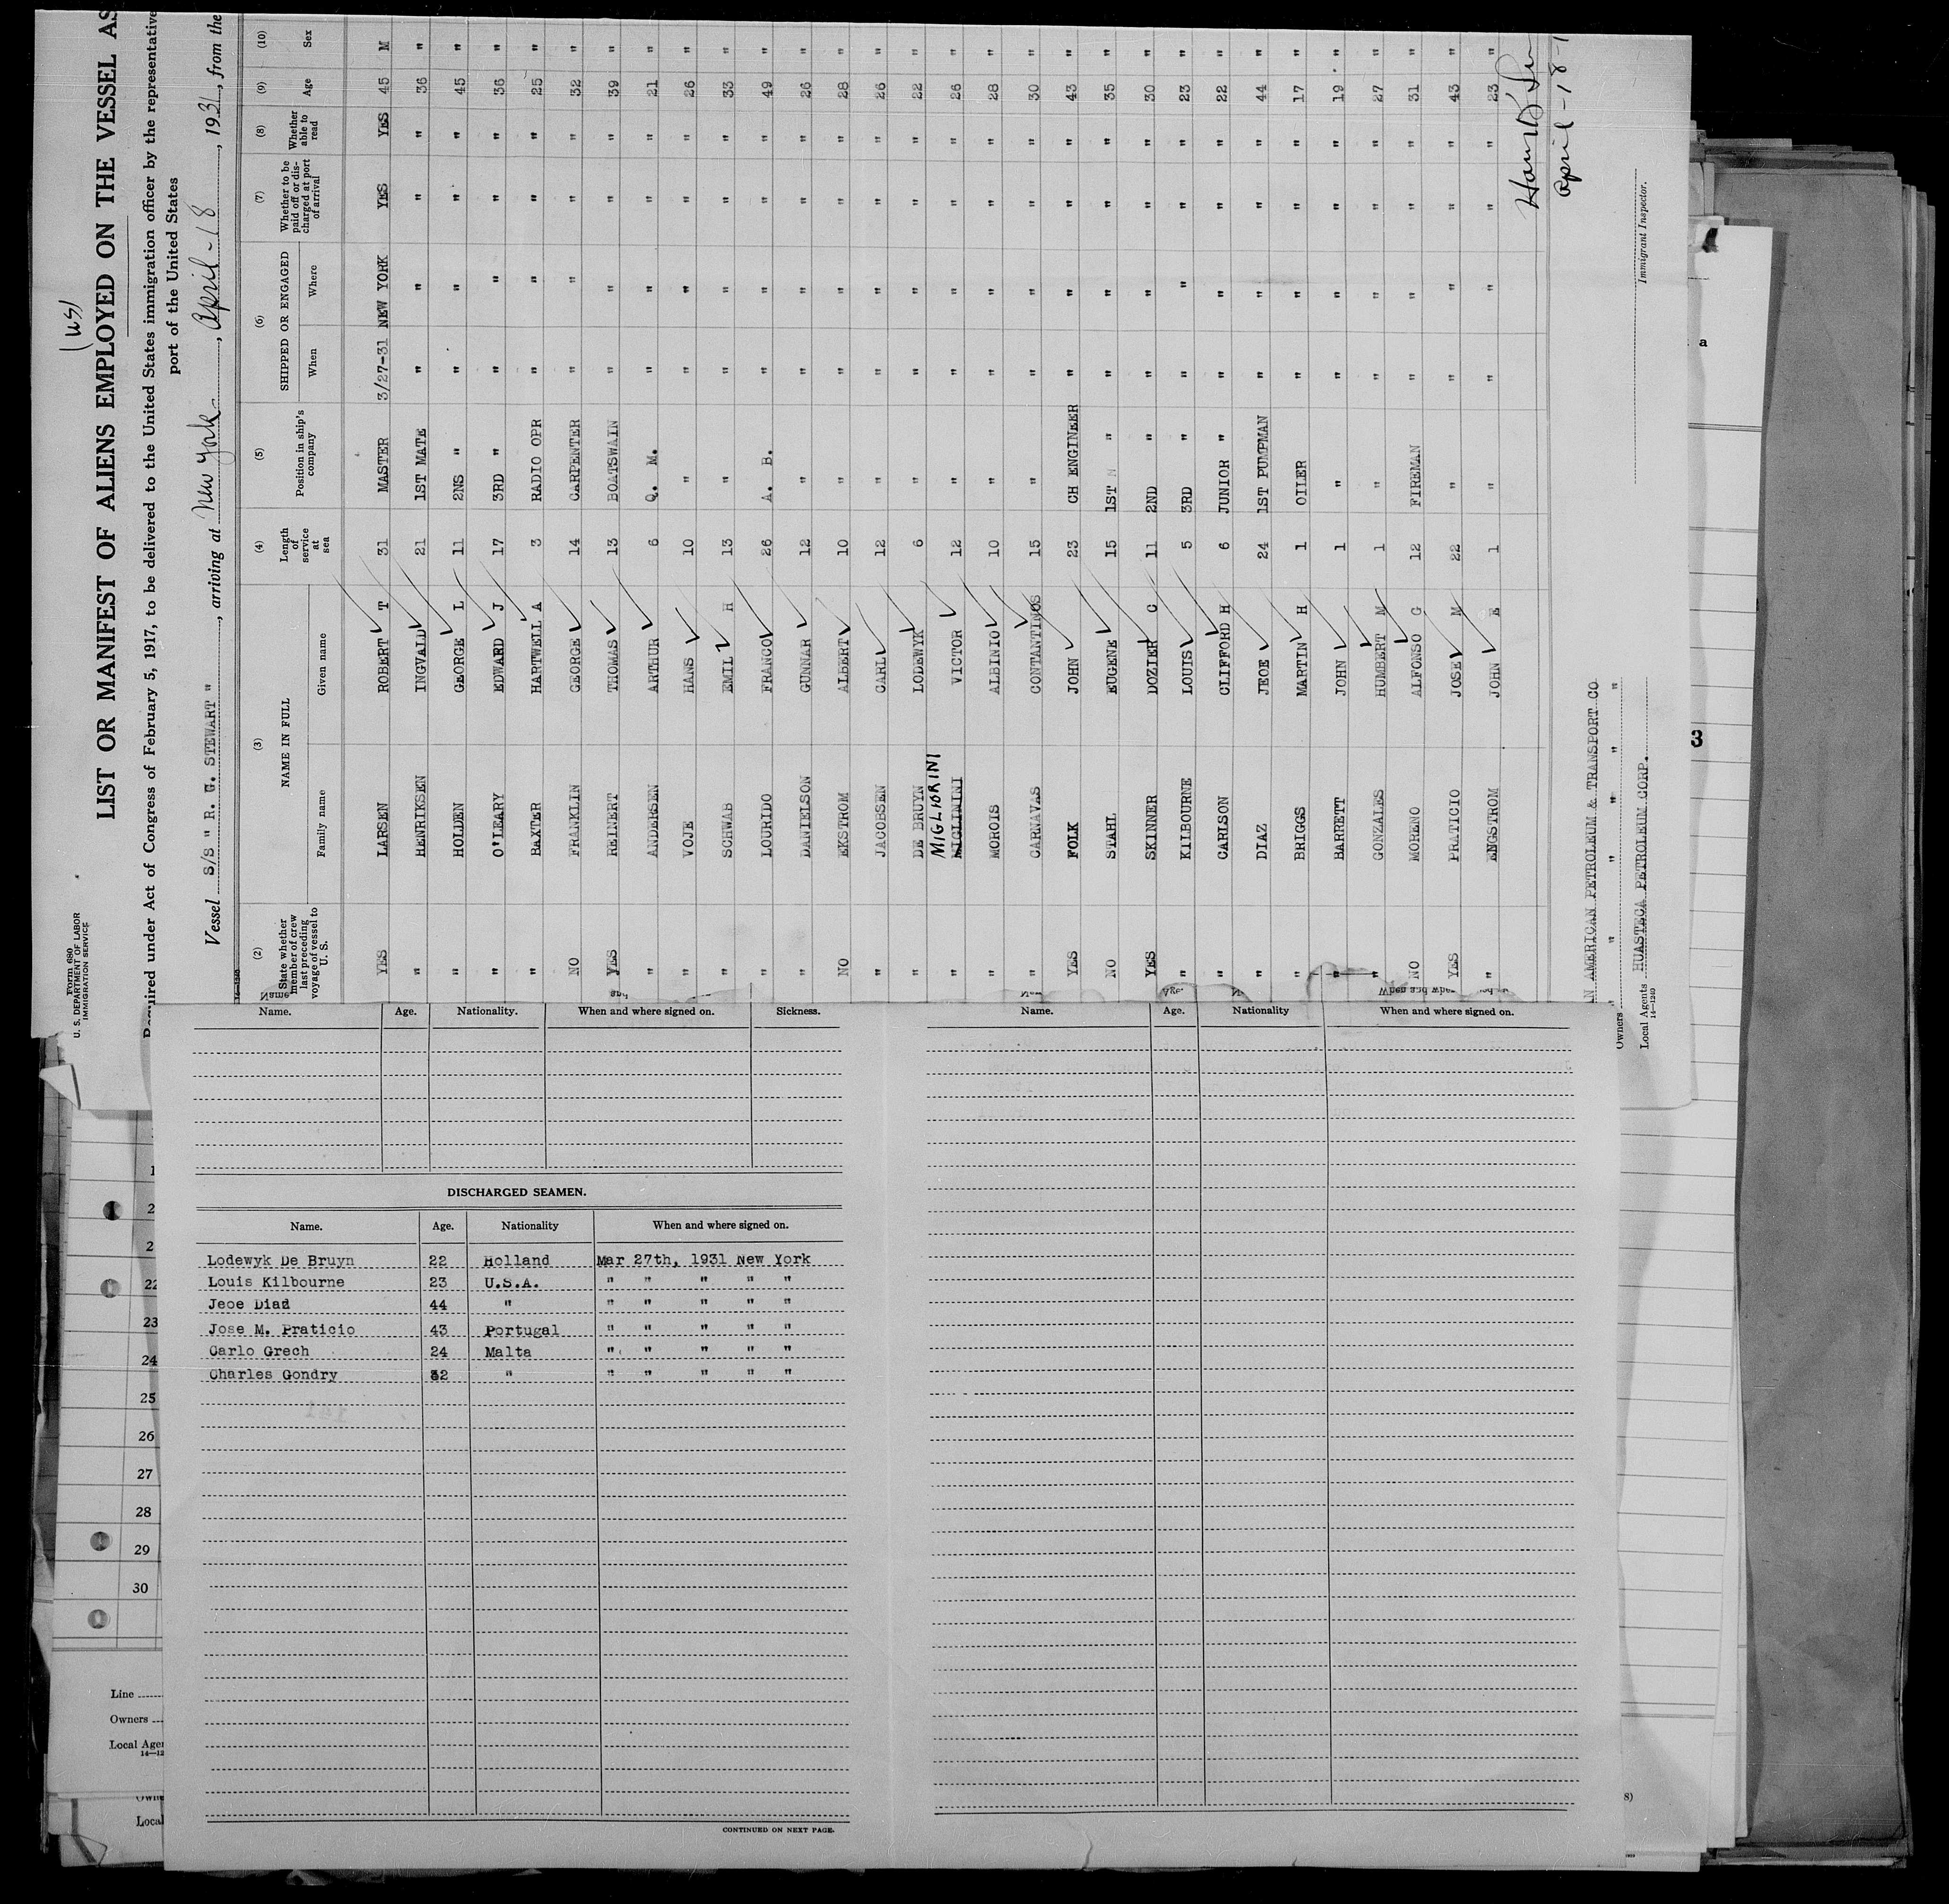 (us)
Form 680
U. S. DEPARTMENT OF LABOR
IMMIGRATION SERVICE
LIST OR MANIFEST OF ALIENS EMPLOYED ON THE VESSEL AS
Required under Act of Congress of February 5, 1917, to be delivered to the United States immigration officer by the representative
port of the United States
Vessel S/S " R. G. STEWART " , arriving at New York , April - 18 , 1931, from the
14-1240
(2) (3) (4) (5) (6) (7) (8) (9) (10)
State whether member of crew last preceding voyage of vessel to U. S. NAME IN FULL Family name Given name Length of service at sea Position in ship's company SHIPPED OR ENGAGED When Where Whether to be paid off or discharged at port of arrival Whether able to read Age Sex
YES LARSEN ROBERT T 31 MASTER 3/27-31 NEW YORK YES YES 45 M
" HENRIKSEN INGVALD 21 1ST MATE " " " " 36 "
" HOLDEN GEORGE L 11 2NS " " " " " 45 "
" O'LEARY EDWARD J 17 3RD " " " " " 36 "
" BAXTER HARTWELL A 3 RADIO OPR " " " " 25 "
NO FRANKLIN GEORGE 14 CARPENTER " " " " 32 "
YES REINERT THOMAS 13 BOATSWAIN " " " " 39 "
" ANDERSEN ARTHUR 6 Q. M. " " " " 21 "
" VOJE HANS 10 " " " " " 26 "
" SCHWAB EMIL H 13 " " " " " 33 "
" LOURIDO FRANCO 26 A. B. " " " " 49 "
" DANIELSON GUNNAR 12 " " " " " 26 "
NO EKSTROM ALBERT 10 " " " " " 28 "
" JACOBSEN CARL 12 " " " " " 26 "
" DE BRUYN LODEWYK 6 " " " " " 22 "
MIGLIORINI
" MIGLININI VICTOR 12 " " " " " 26 "
" MOROIS ALBINIO 10 " " " " " 28 "
" CARNAVAS CONTANTINOS 15 " " " " " 30 "
YES FOLK JOHN 23 CH ENGINEER " " " " 43 "
NO STAHL EUGENE 15 1ST " " " " " 35 "
YES SKINNER DOZIER C 11 2ND " " " " " 30 "
" KILBOURNE LOUIS 5 3RD " " " " " 23 "
" CARLSON CLIFFORD H 6 JUNIOR " " " " " 22 "
" DIAZ JEOE 24 1ST PUMPMAN " " " " 44 "
" BRIGGS MARTIN H 1 OILER " " " " 17 "
" BARRETT JOHN 1 " " " " " 19 "
" GONZALES HUMBERT M 1 " " " " " 27 "
NO MORENO ALFONSO G 12 FIREMAN " " " " 31 "
YES PRATICIO JOSE M 22 " " " " " 43 "
" ENGSTROM JOHN E 1 " " " " " 23 "
April - 18 -
AN AMERICAN PETROLEUM & TRANSPORT CO
Owners " " " " "
Local Agents HUASTECA PETROLEUM CORP.
14-1240
Immigrant Inspector.
Name. Age. Nationality. When and where signed on. Sickness.
Name. Age. Nationality When and where signed on.
DISCHARGED SEAMEN.
Name. Age. Nationality When and where signed on.
Lodewyk De Bruyn 22 Holland Mar 27th, 1931 New York
Louis Kilbourne 23 U.S.A. " " " " "
Jeoe Diaz 44 " " " " " "
Jose M. Praticio 43 Portugal " " " " "
Carlo Grech 24 Malta " " " " "
Charles Gondry 32 " " " " " "
CONTINUED ON NEXT PAGE.
22
23
24
25
26
27
28
29
30
Line
Owners
Local Agen
14-12
Owne
Local
a
3
8)